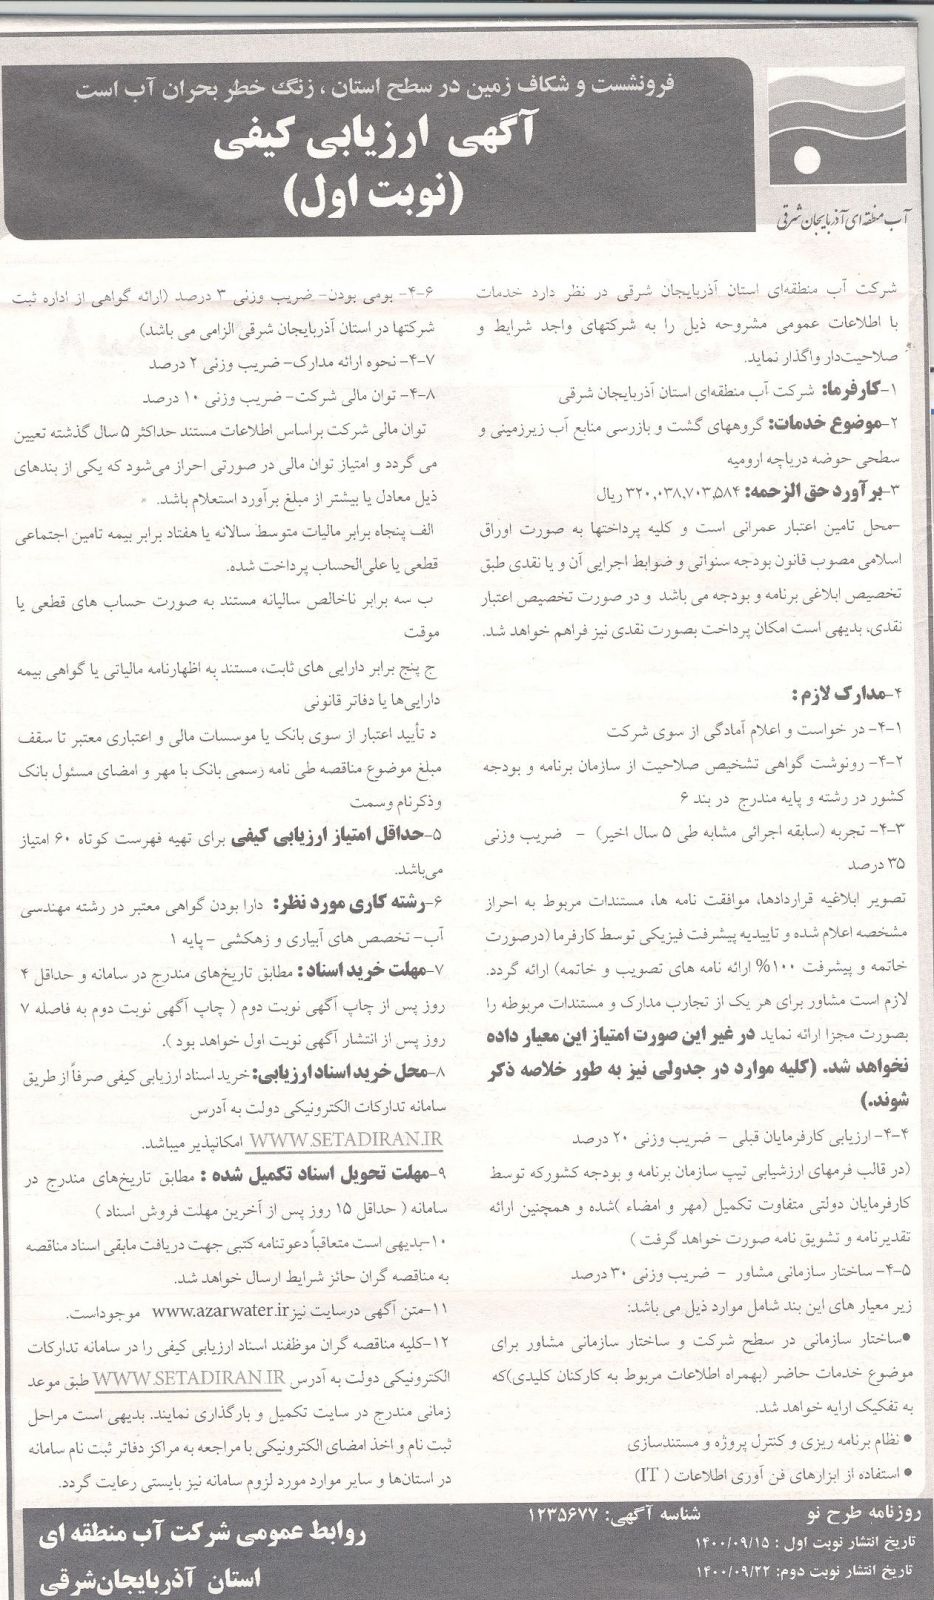 فرونشست و شکاف زمین در سطح استان ، زنگ خطر بحران آب است
آگهی ارزیابی کیفی
(نوبت اول)
آب منطقه ای آذربایجان شرقی
شرکت آب منطقه‌ای استان آذربایجان شرقی در نظر دارد خدمات
با اطلاعات عمومی مشروحه ذیل را به شرکتهای واجد شرایط و
صلاحیت‌دار واگذار نماید.
۱-کارفرما: شرکت آب منطقه‌ای استان آذربایجان شرقی
۲-موضوع خدمات: گروههای گشت و بازرسی منابع آب زیرزمینی و
سطحی حوضه دریاچه ارومیه
۳-برآورد حق الزحمه: ۳۲۰,۰۳۸,۷۰۳,۵۸۴ ریال
-محل تامین اعتبار عمرانی است و کلیه پرداختها به صورت اوراق
اسلامی مصوب قانون بودجه سنواتی و ضوابط اجرایی آن و یا نقدی طبق
تخصیص ابلاغی برنامه و بودجه می باشد و در صورت تخصیص اعتبار
نقدی، بدیهی است امکان پرداخت بصورت نقدی نیز فراهم خواهد شد.
۴-مدارک لازم :
۴-۱- در خواست و اعلام آمادگی از سوی شرکت
۴-۲- رونوشت گواهی تشخیص صلاحیت از سازمان برنامه و بودجه
کشور در رشته و پایه مندرج در بند ۶
۴-۳- تجربه (سابقه اجرائی مشابه طی ۵ سال اخیر) - ضریب وزنی
۳۵ درصد
تصویر ابلاغیه قراردادها، موافقت نامه ها، مستندات مربوط به احراز
مشخصه اعلام شده و تاییدیه پیشرفت فیزیکی توسط کارفرما (درصورت
خاتمه و پیشرفت ۱۰۰% ارائه نامه های تصویب و خاتمه) ارائه گردد.
لازم است مشاور برای هر یک از تجارب مدارک و مستندات مربوطه را
بصورت مجزا ارائه نماید در غیر این صورت امتیاز این معیار داده
نخواهد شد. (کلیه موارد در جدولی نیز به طور خلاصه ذکر
شوند.)
۴-۴- ارزیابی کارفرمایان قبلی - ضریب وزنی ۲۰ درصد
(در قالب فرمهای ارزشیابی تیپ سازمان برنامه و بودجه کشورکه توسط
کارفرمایان دولتی متفاوت تکمیل (مهر و امضاء )شده و همچنین ارائه
تقدیرنامه و تشویق نامه صورت خواهد گرفت )
۴-۵- ساختار سازمانی مشاور - ضریب وزنی ۳۰ درصد
زیر معیار های این بند شامل موارد ذیل می باشد:
●ساختار سازمانی در سطح شرکت و ساختار سازمانی مشاور برای
موضوع خدمات حاضر (بهمراه اطلاعات مربوط به کارکنان کلیدی)که
به تفکیک ارایه خواهد شد.
● نظام برنامه ریزی و کنترل پروژه و مستندسازی
● استفاده از ابزارهای فن آوری اطلاعات ( IT)
۴-۶- بومی بودن- ضریب وزنی ۳ درصد (ارائه گواهی از اداره ثبت
شرکتها در استان آذربایجان شرقی الزامی می باشد)
۴-۷- نحوه ارائه مدارک- ضریب وزنی ۲ درصد
۴-۸- توان مالی شرکت- ضریب وزنی ۱۰ درصد
توان مالی شرکت براساس اطلاعات مستند حداکثر ۵ سال گذشته تعیین
می گردد و امتیاز توان مالی در صورتی احراز می‌شود که یکی از بندهای
ذیل معادل یا بیشتر از مبلغ برآورد استعلام باشد.
الف پنجاه برابر مالیات متوسط سالانه یا هفتاد برابر بیمه تامین اجتماعی
قطعی یا علی‌الحساب پرداخت شده.
ب سه برابر ناخالص سالیانه مستند به صورت حساب های قطعی یا
موقت
ج پنج برابر دارایی های ثابت، مستند به اظهارنامه مالیاتی یا گواهی بیمه
دارایی‌ها یا دفاتر قانونی
د تأیید اعتبار از سوی بانک یا موسسات مالی و اعتباری معتبر تا سقف
مبلغ موضوع مناقصه طی نامه رسمی بانک با مهر و امضای مسئول بانک
وذکرنام وسمت
۵-حداقل امتیاز ارزیابی کیفی برای تهیه فهرست کوتاه ۶۰ امتیاز
می‌باشد.
۶-رشته کاری مورد نظر: دارا بودن گواهی معتبر در رشته مهندسی
آب- تخصص های آبیاری و زهکشی - پایه ۱
۷-مهلت خرید اسناد : مطابق تاریخ‌های مندرج در سامانه و حداقل ۴
روز پس از چاپ آگهی نوبت دوم ( چاپ آگهی نوبت دوم به فاصله ۷
روز پس از انتشار آگهی نوبت اول خواهد بود ).
۸-محل خرید اسناد ارزیابی: خرید اسناد ارزیابی کیفی صرفاً از طریق
سامانه تدارکات الکترونیکی دولت به آدرس
WWW.SETADIRAN.IR امکانپذیر میباشد.
۹-مهلت تحویل اسناد تکمیل شده : مطابق تاریخ‌های مندرج در
سامانه ( حداقل ۱۵ روز پس از آخرین مهلت فروش اسناد )
۱۰-بدیهی است متعاقباً دعوتنامه کتبی جهت دریافت مابقی اسناد مناقصه
به مناقصه گران حائز شرایط ارسال خواهد شد.
۱۱-متن آگهی درسایت نیزwww.azarwater.ir موجوداست.
۱۲-کلیه مناقصه گران موظفند اسناد ارزیابی کیفی را در سامانه تدارکات
الکترونیکی دولت به آدرس WWW.SETADIRAN.IR طبق موعد
زمانی مندرج در سایت تکمیل و بارگذاری نمایند. بدیهی است مراحل
ثبت نام و اخذ امضای الکترونیکی با مراجعه به مراکز دفاتر ثبت نام سامانه
در استان‌ها و سایر موارد مورد لزوم سامانه نیز بایستی رعایت گردد.
روزنامه طرح نو شناسه آگهی: ۱۲۳۵۶۷۷
تاریخ انتشار نوبت اول : ۱۴۰۰/۰۹/۱۵
تاریخ انتشار نوبت دوم: ۱۴۰۰/۰۹/۲۲
روابط عمومی شرکت آب منطقه ای
استان آذربایجان‌شرقی